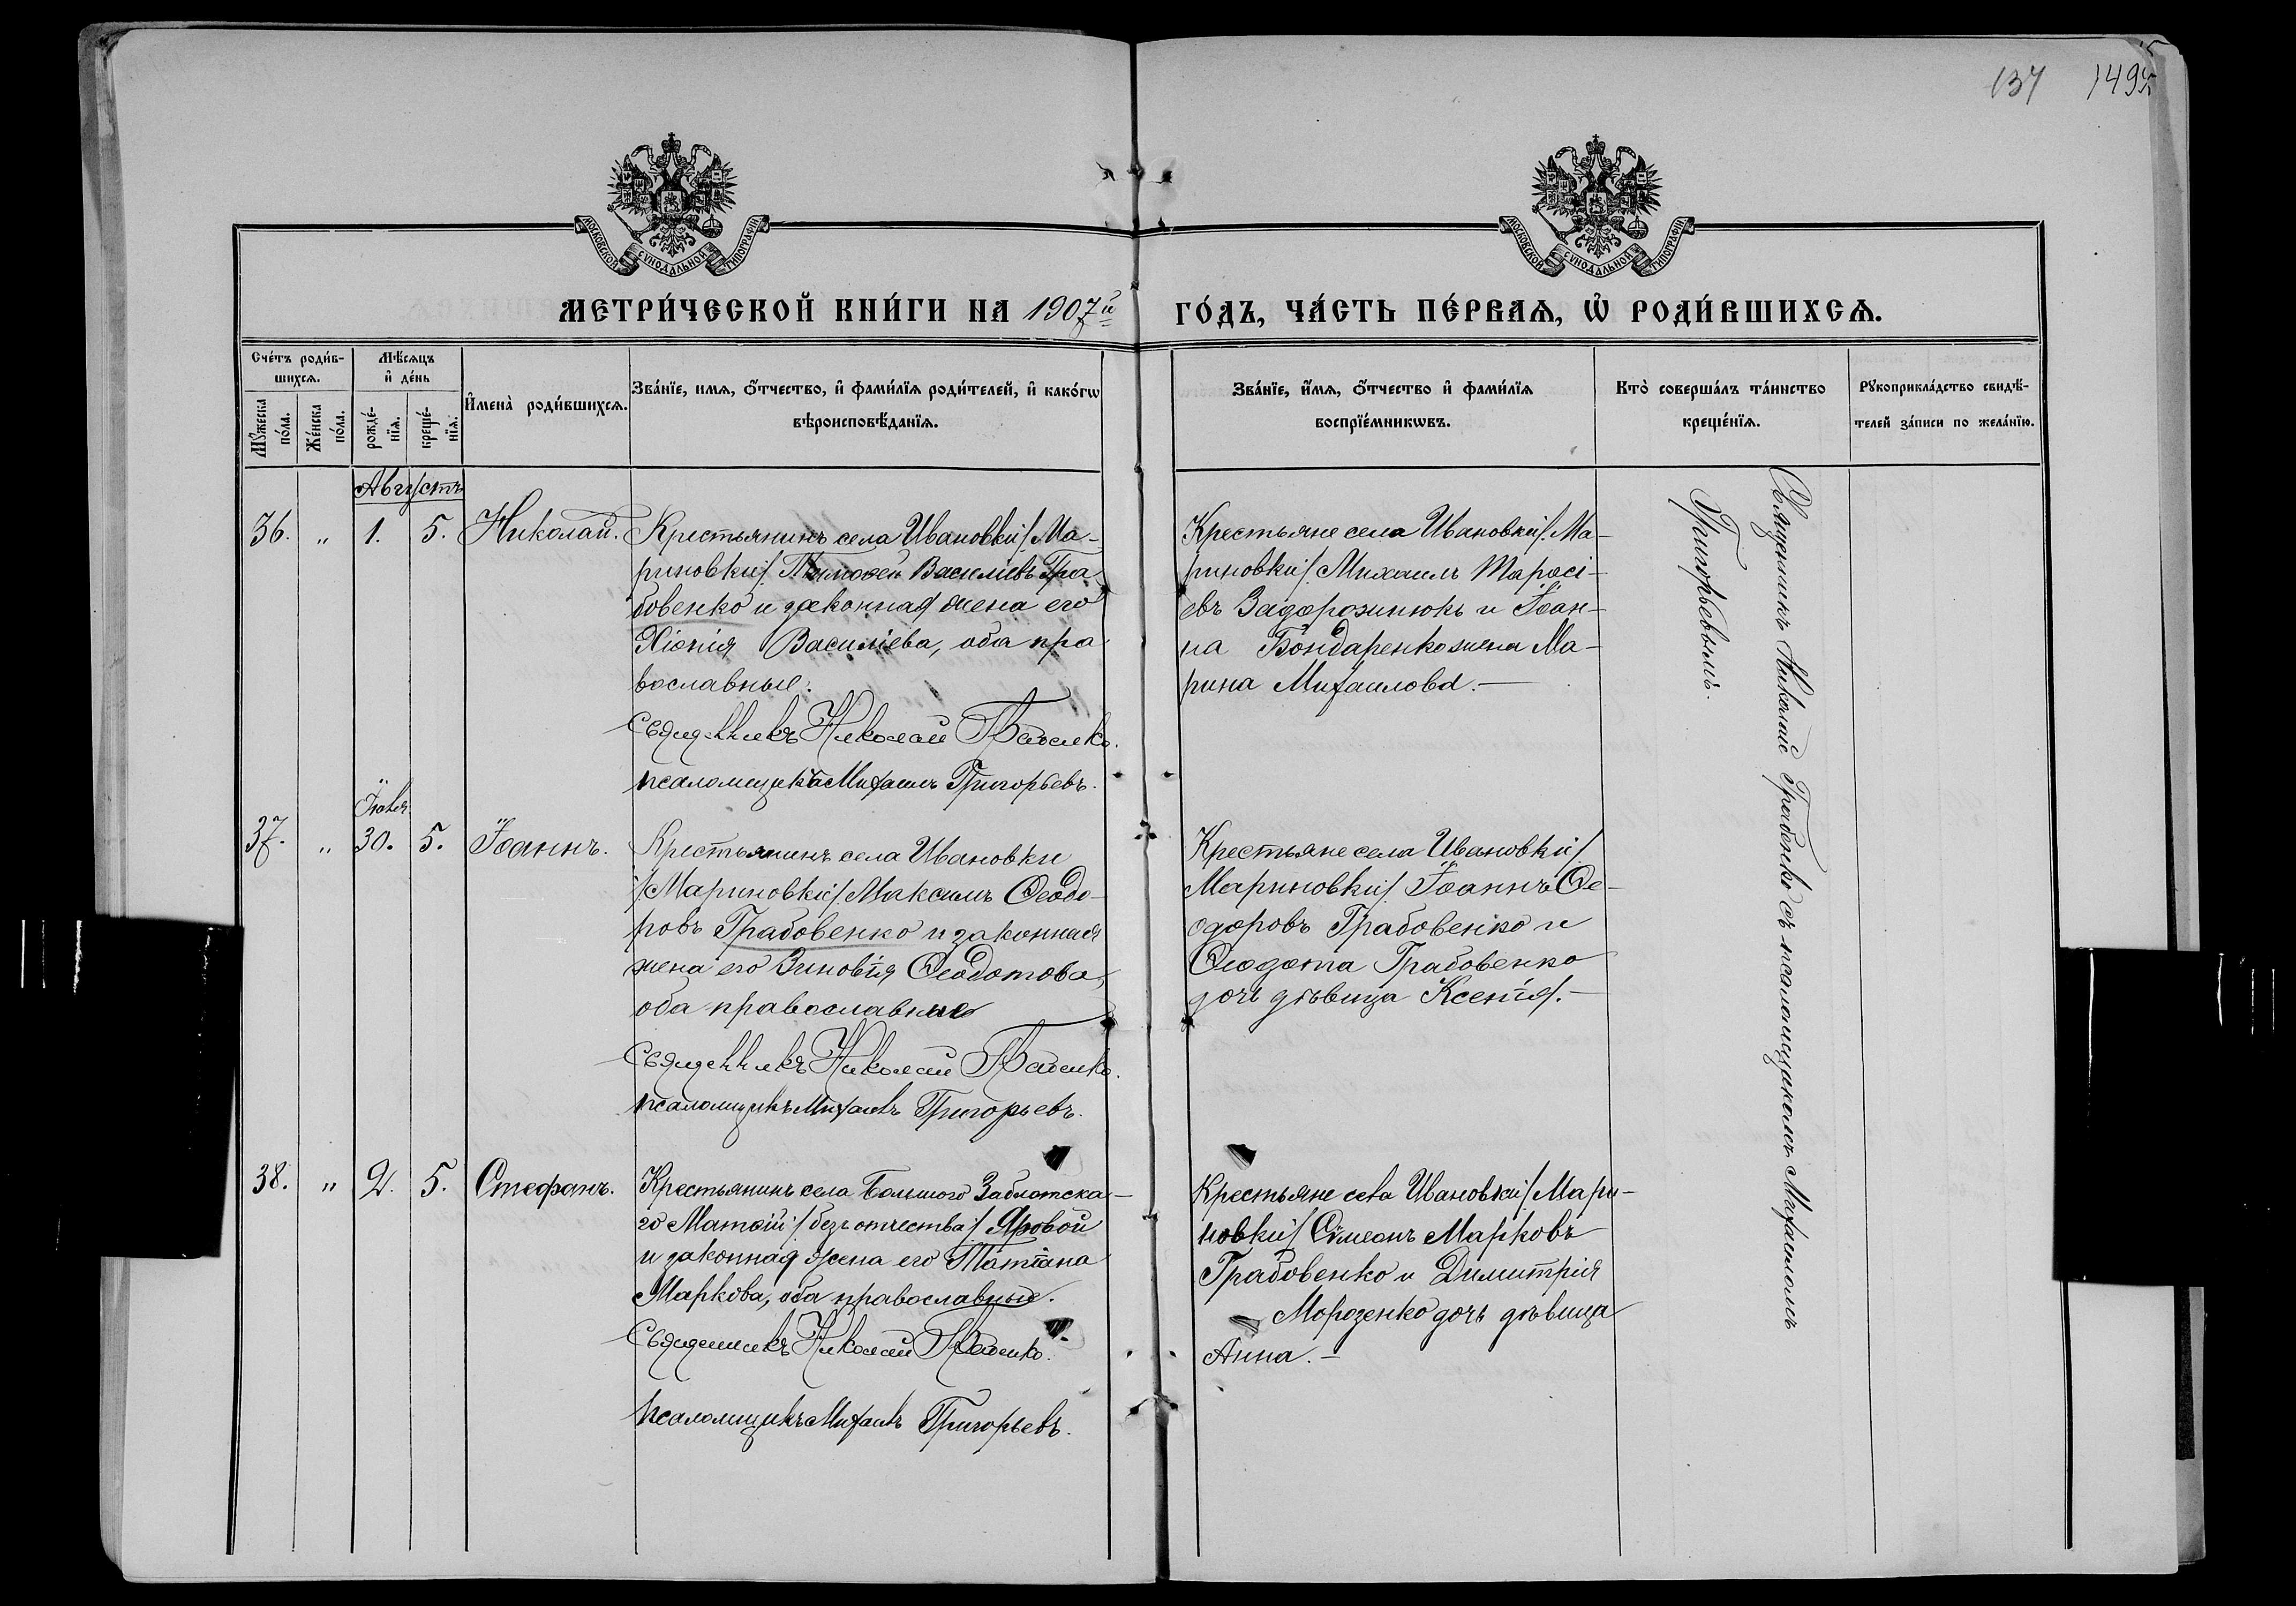 137 1495
МОСКОВСКОЙ СУНОДАЛЬНОЙ ТИПОГРАФІИ
МОСКОВСКОЙ СУНОДАЛЬНОЙ ТИПОГРАФІИ
МЕТРИ́ЧЕСКОЙ КНИ́ГИ НА 1907й ГО́ДЪ, ЧА́СТЬ ПЕ́РВАѦ, Ѽ РОДИ́ВШИХСѦ.
Сче́тъ роди́в-
шихсѧ.
Мꙋ́жеска
по́ла.
Же́нска
по́ла.
Мѣ́сѧцъ
и҆ де́нь
рожде́-
нїѧ.
креще́-
нїѧ.
И҆мена̀ роди́вшихсѧ.
Зва́нїе, имѧ, ѻ҆́тчество, и҆ фами́лїѧ роди́телей, и҆ како́гѡ
вѣроисповѣ́данїѧ.
Зва́нїе, и҆́мѧ, ѻ҆́тчество и҆ фами́лїѧ
воспрїе́мникѡвъ.
Кто̀ соверша́лъ та́инство
креще́нїѧ.
Рꙋкоприкла́дство свидѣ́-
телей за́писи по жела́нїю.
Августъ
36. „ 1. 5. Николай.
Крестьянинъ села Ивановки/Ма-
риновки/ Тимоѳей Василіевъ Гра
бовенко и законная жена его
Хіонія Василіева, оба пра
вославные.
Священникъ Николай Грабенко.
псаломщикъ Михаилъ Григорьевъ.
Крестьяне села Ивановки/Ма-
риновки/ Михаилъ Тарасі-
евъ Задорожнюкъ и Іоан-
на Бондаренко жена Ма-
рина Михаилова.—
Іюля
37. „ 30. 5. Іоаннъ.
Крестьянинъ села Ивановки
/Мариновки/ Максимъ Ѳеодо-
ровъ Грабовенко и законная
жена его Зиновія Ѳеодотова,
оба православные
Священникъ Николай Грабенко.
псаломщикъ Михаилъ Григорьевъ.
Крестьяне села Ивановки/
Мариновки/ Іоаннъ Ѳе-
одоровъ Грабовенко и
Ѳеодота Грабовенко
дочь дѣвица Ксенія.—
38. „ 2. 5. Стефанъ.
Крестьянинъ села Большого Заблотска-
го Матѳій /безъ отчества/ Яровой
и законная жена его Татіана
Маркова, оба православные.
Священникъ Николай Грабенко.
псаломщикъ Михаилъ Григорьевъ.
Крестьяне села Ивановки/Мари-
новки/ Сѵмеонъ Марковъ
Грабовенко и Димитрія
Морозенко дочь дѣвица
Анна.—
Священникъ Николай Грабенко съ псаломщикомъ Михаиломъ
Григорьевымъ.